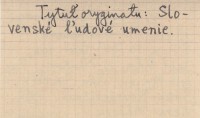 Tytuł oryginału: Slo-
venské ľudové umenie.